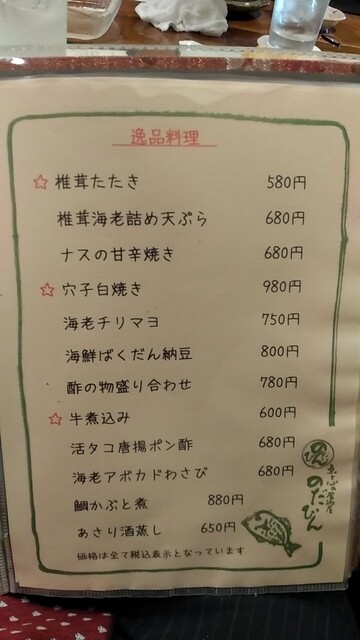 逸品料理
☆ 椎茸たたき 580円
椎茸海老詰め天ぷら 680円
ナスの甘辛焼き 680円
☆ 穴子白焼き 980円
海老チリマヨ 750円
海鮮ばくだん納豆 800円
酢の物盛り合わせ 780円
☆ 牛煮込み 600円
活タコ唐揚ポン酢 680円
海老アボカドわさび 680円
鯛かぶと煮 880円
あさり酒蒸し 650円
価格は全て税込表示となっています
のだびん